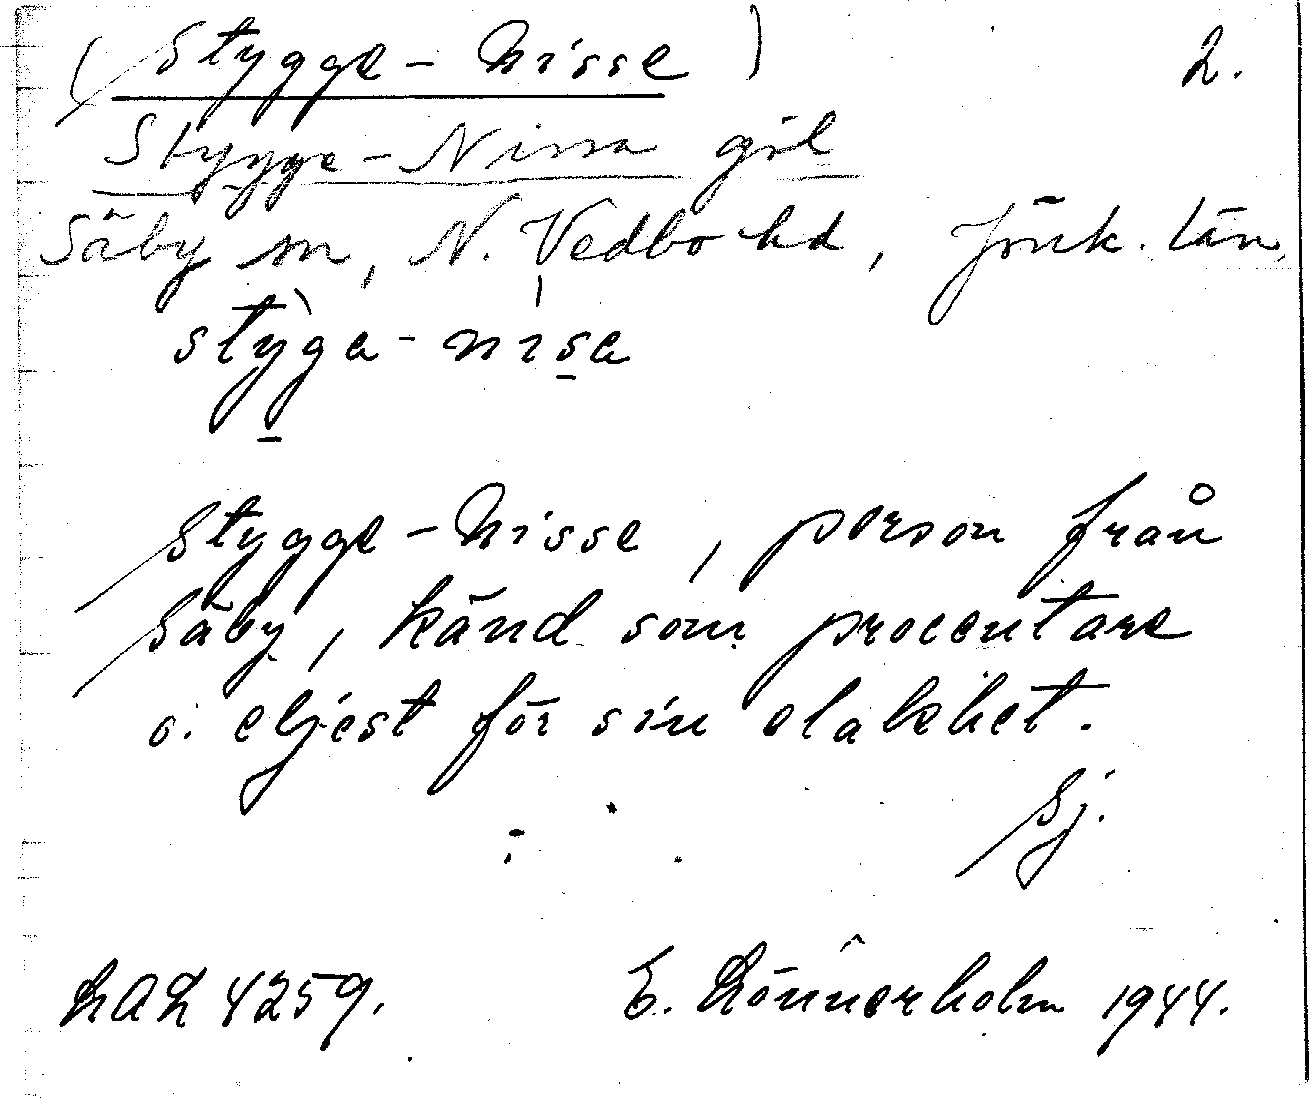 (Stygge-Nisse) 2.
Stygge-Nissa göl
Säby sn, N. Vedbo hd, Jönk. län.
styga-nisa
Stygge-Nisse, person från
Säby, känd som procentare
o. eljest för sin elakhet.
Sj.
LAL 4259. E. Lönnerholm 1944.